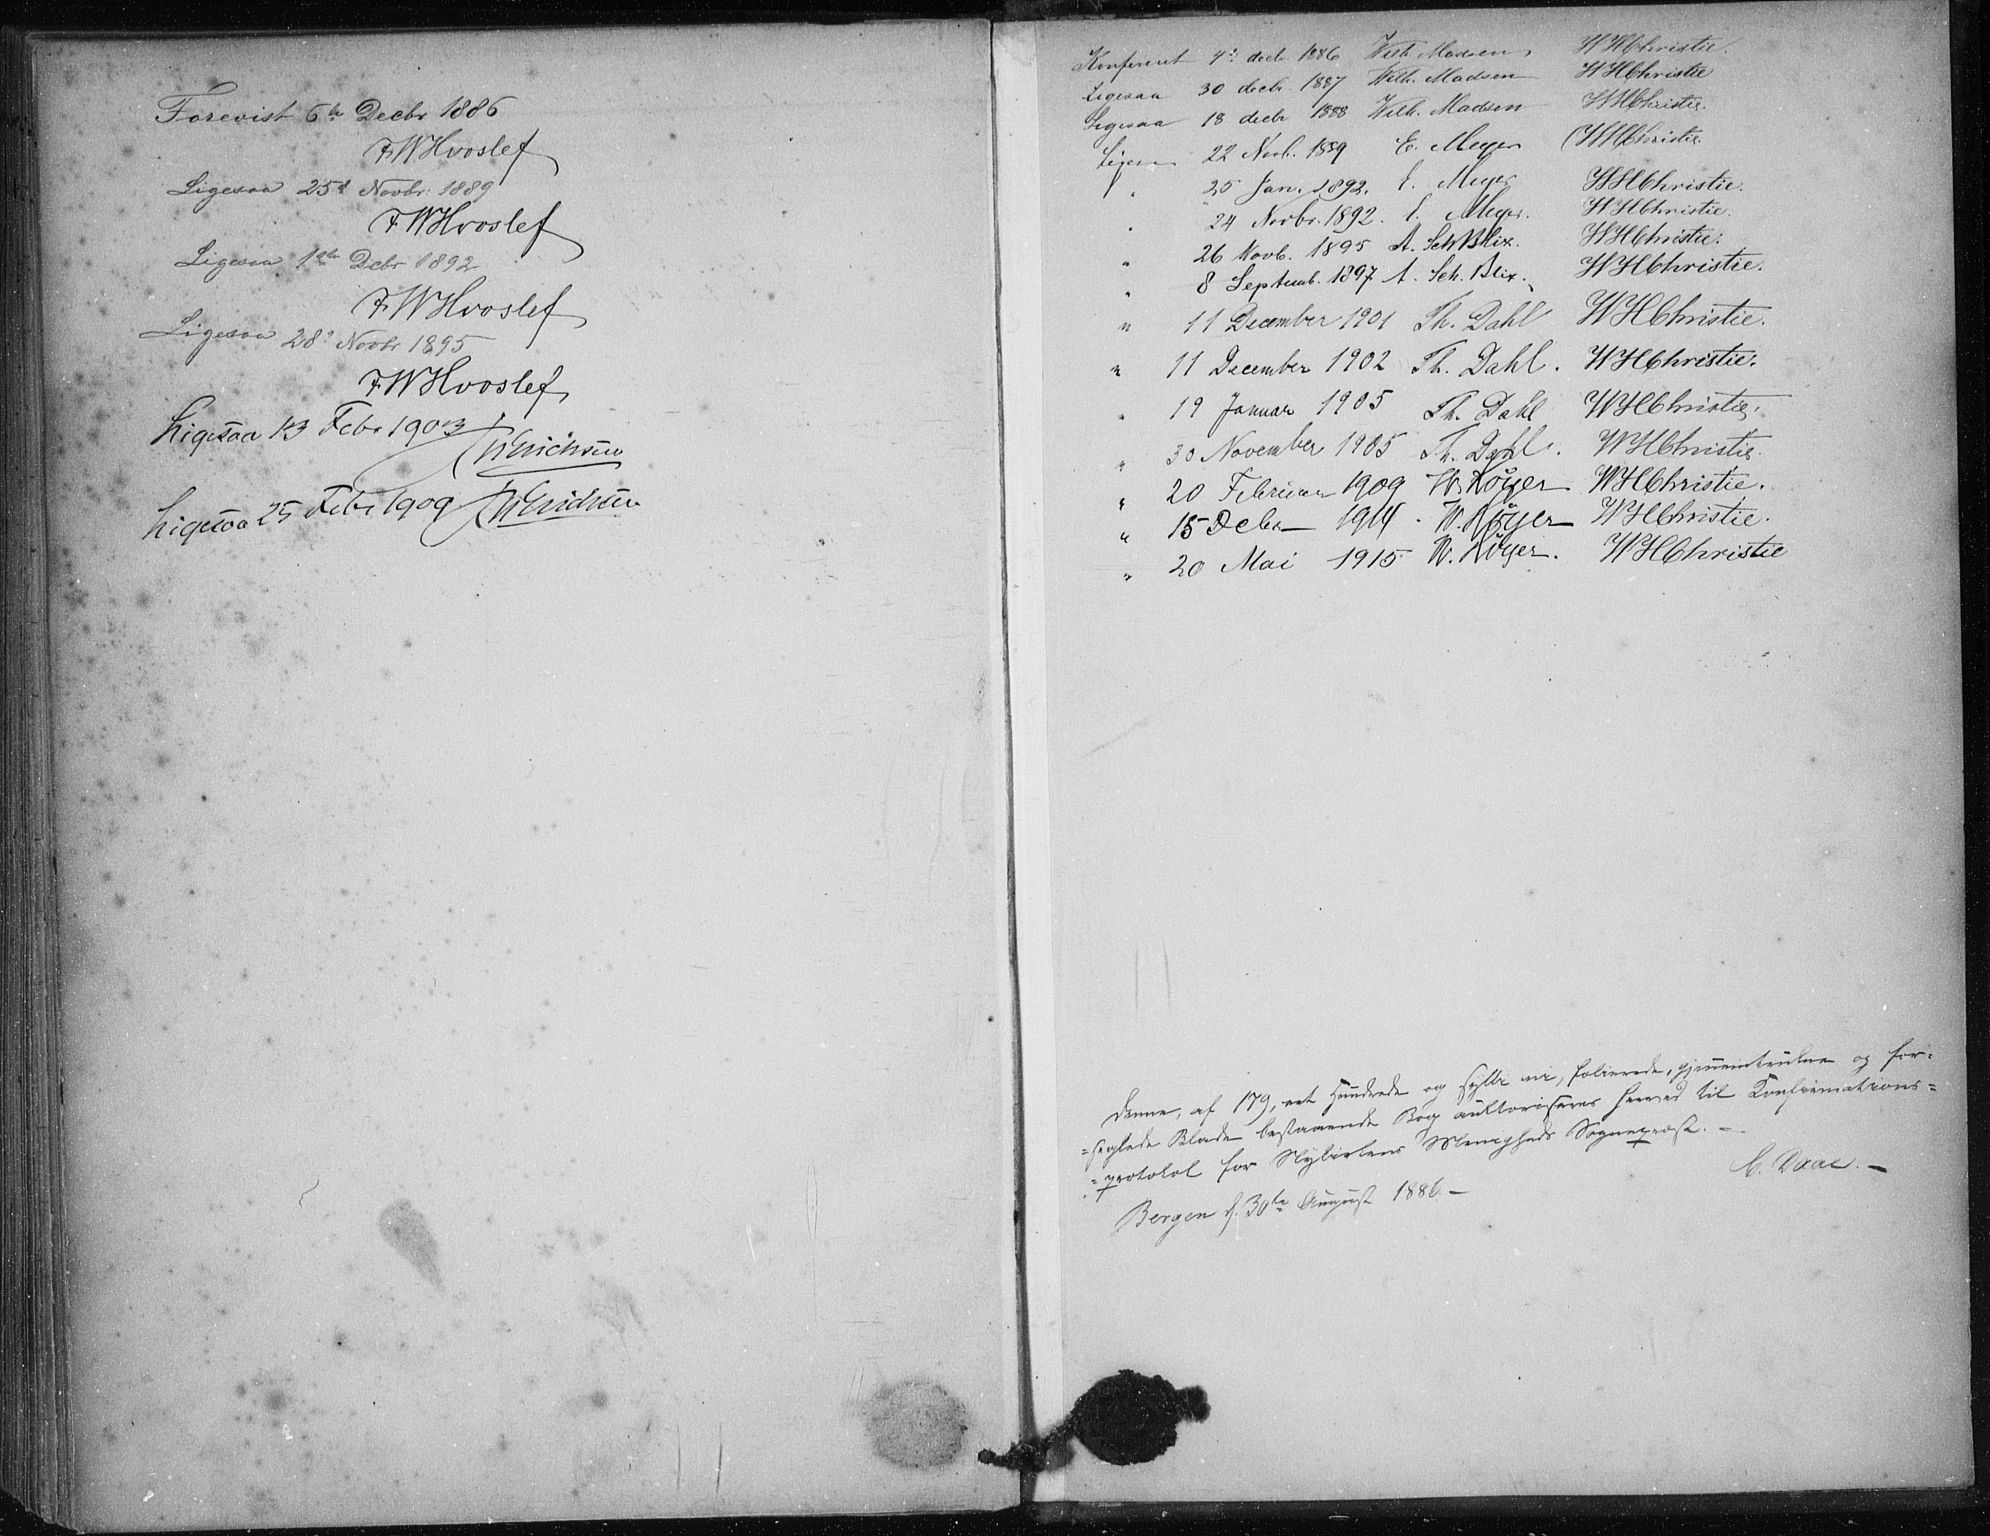 Forevist 6te Decbr 1886
FWHvoslef
Ligesaa 25d Novbr. 1889
FWHvoslef
Ligesaa 1ste Decbr 1892
FWHvoslef
Ligesaa 28d Novbr 1895
FWHvoslef
Ligesaa 13 Febr 1903
Erichsen
Ligesaa 25 Febr 1909 Erichsen
Konferert 4de decbr. 1886 Wilh. Madsen WHChristie.
Ligesaa 30 decbr. 1887 Wilh. Madsen WHChristie
Ligesaa 18 decbr 1888 Wilh. Madsen WHChristie.
Ligesaa 22 Novb. 1889 E. Meyer WHChristie.
" 25 Jan. 1892. E. Meyer WHChristie.
" 24 Novbr. 1892. E. Meyer. WHChristie.
" 26 Novb. 1895 A. Sch Blix. WHChristie.
" 8 Septemb. 1897 A. Sch. Blix. WHChristie.
" 11 December 1901 Th. Dahl WHChristie.
" 11 December 1902 Th. Dahl. WHChristie.
" 19 Januar 1905 Th. Dahl WHChristie.
" 30 November 1905 Th. Dahl. WHChristie.
" 20 Februar 1909 W. Köyer WHChristie.
" 15 Decbr 1914. W. Köyer WHChristie.
" 20 Mai 1915 W. Köyer. WHChristie
Denne, af 179, et Hundrede og sytti ni, folierede, gjennemtrukne og for-
=seglede Blade bestaaende Bog auktoriseres herved til Confirmations-
=protokol for Nykirkens Menigheds Sognepræst. -
C. Daae. -
Bergen d. 30te August 1886. -